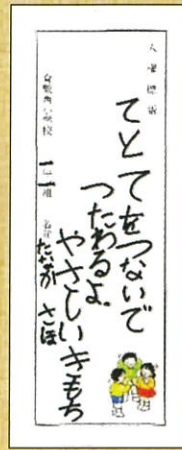 人権標語
てとてをつないで
つたわるよ。
やさしいきもち
倉敷西小学校
一年一組 名前
たいが さほ